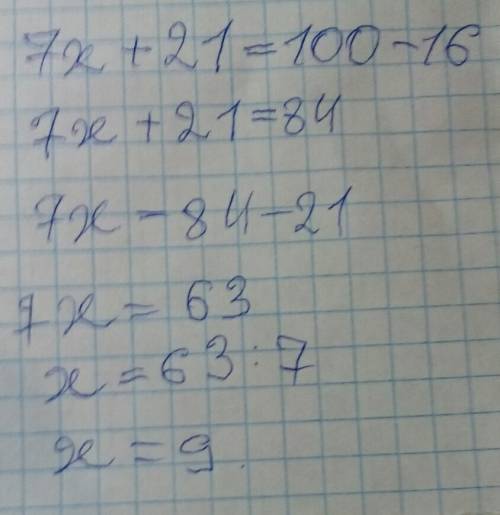 7x + 21 = 100 - 16
7x + 21 = 84
7x - 84 - 21
7x = 63
x = 63 : 7
x = 9.